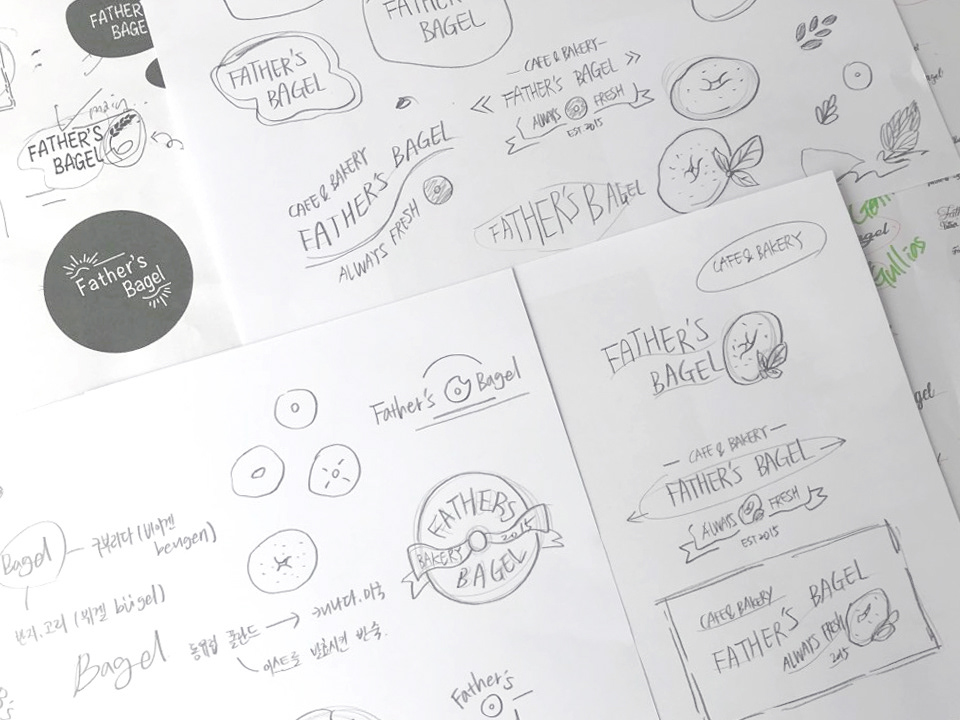 FATHER'S
BAGEL
FATHER
BAGE
main
FATHER'S
BAGEL
Father's
Bagel
FATHER'S
BAGEL
CAFE & BAKERY
FATHER'S BAGEL
ALWAYS FRESH
EST. 2015
CAFE & BAKERY
FATHER'S BAGEL
ALWAYS FRESH
FATHER'S BAGEL
Gullias
CAFE & BAKERY
FATHER'S
BAGEL
CAFE & BAKERY
FATHER'S BAGEL
ALWAYS FRESH
EST 2015
CAFE & BAKERY
FATHER'S BAGEL
ALWAYS FRESH
2015
Father's Bagel
FATHER'S
BAKERY 2015
BAGEL
Bagel 구부리다 (비이겐
beugen)
반지.고리 (뷔겔 bügel)
Bagel 동유럽 폴란드 → 캐나다.미국
이스트로 발효시킨 반죽.
Father's